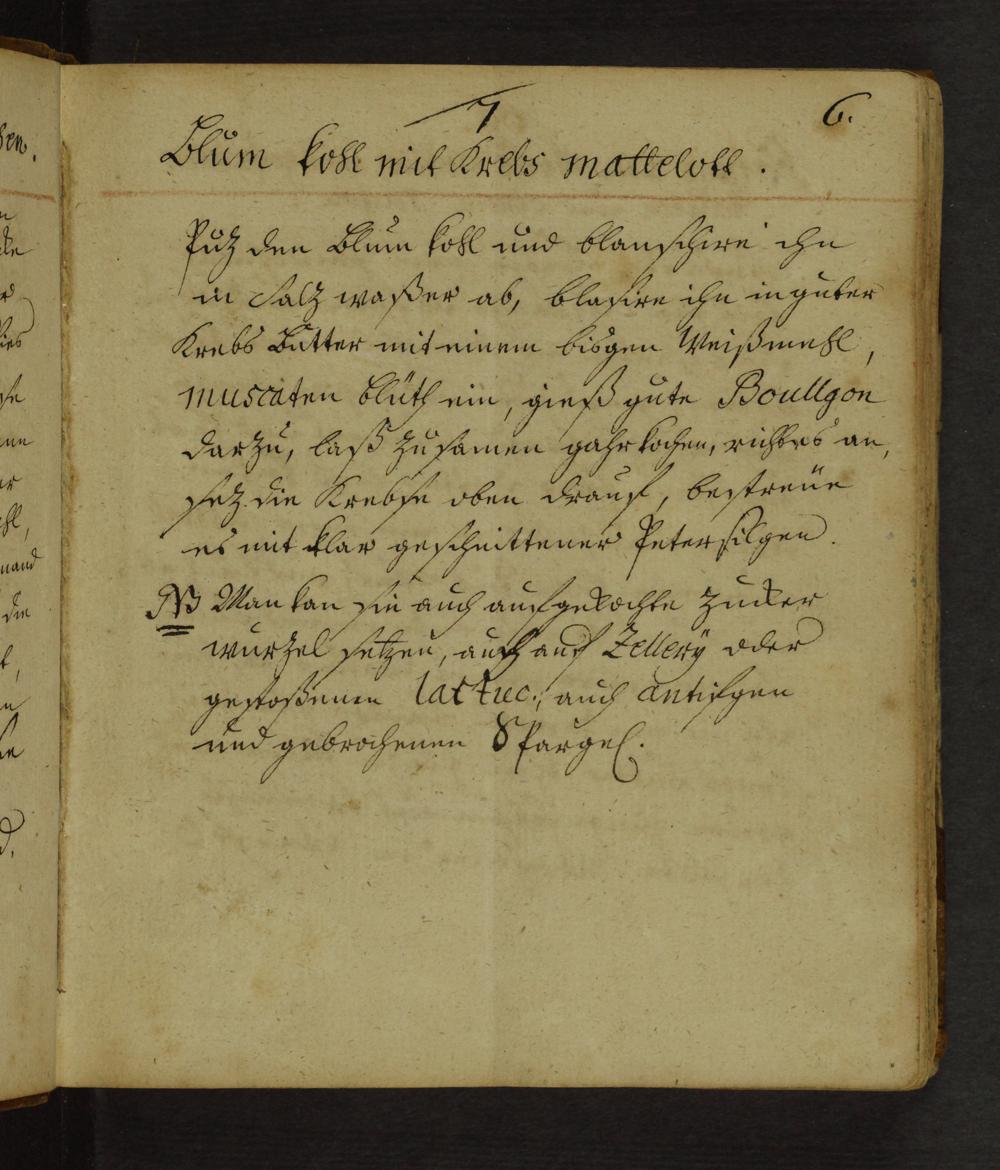 7 6.
Blum kohl mit Krebs mattelott.
Putz den Blum kohl und blanschire ihn
in Saltz waßer ab, blasire ihn in guter
Krebs Butter mit einem bisgen Weißmehl,
muscaten blüth ein, gieß gute Boullgon
darzu, laß zusamen gahr kochen, richt es an,
setz die Krebse oben drauf, bestreüe
es mit klar geschnittener Petersilgen.
NB Man kan sie auch auf gekochte Zucker
wurzel setzen, auch auf Zellerÿ oder
gestoßenen lattuc., auch antifgen
und gebrochenen Spargel.